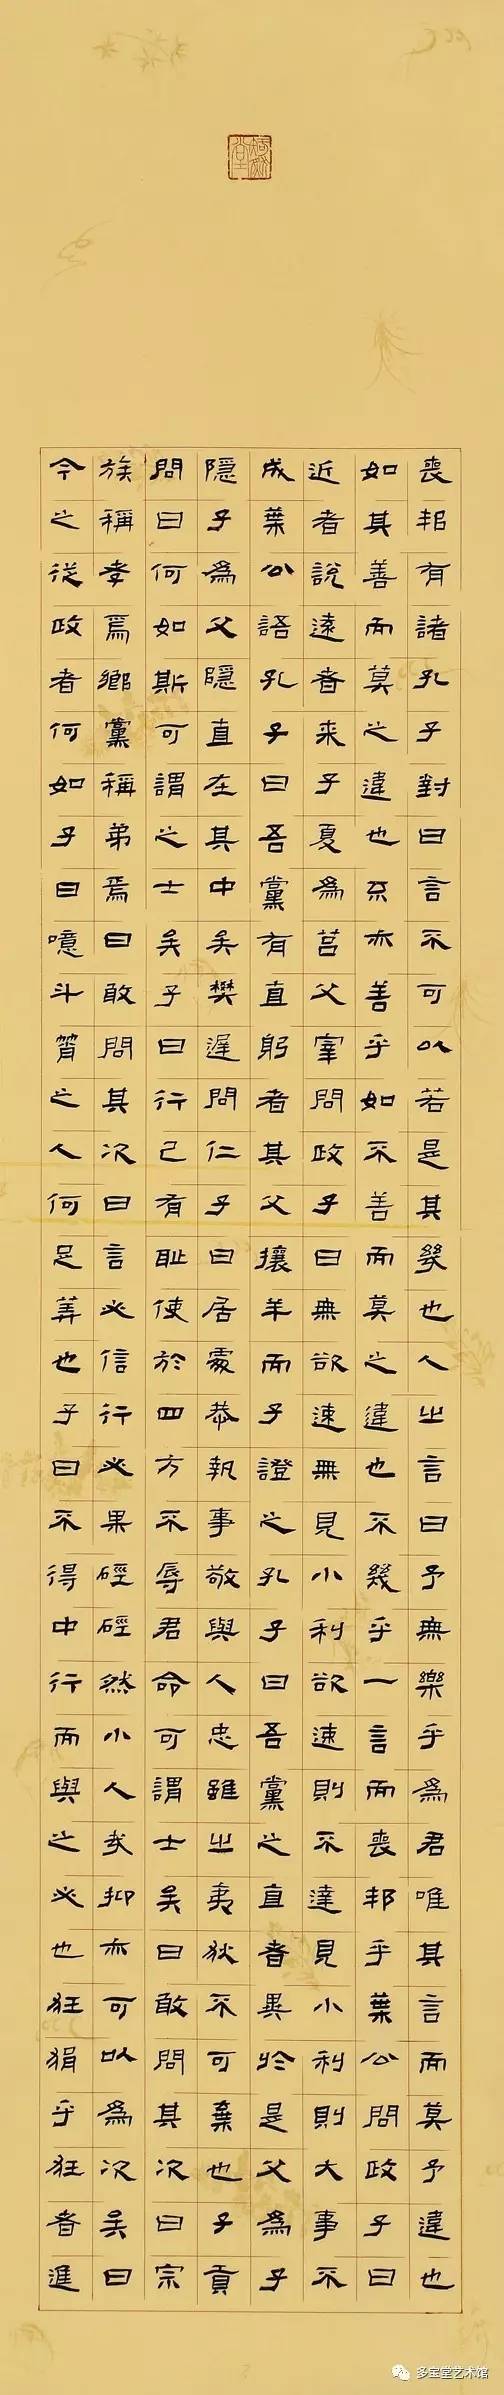 喪邦有諸孔子對曰言不可以若是其幾也人之言曰予無樂乎為君唯其言而莫予違也
如其善而莫之違也不亦善乎如不善而莫之違也不幾乎一言而喪邦乎葉公問政子曰
近者說遠者來子夏為莒父宰問政子曰無欲速無見小利欲速則不達見小利則大事不
成葉公語孔子曰吾黨有直躬者其父攘羊而子證之孔子曰吾黨之直者異於是父為子
隱子為父隱直在其中矣樊遲問仁子曰居處恭執事敬與人忠雖之夷狄不可棄也子貢
問曰何如斯可謂之士矣子曰行己有耻使於四方不辱君命可謂士矣曰敢問其次曰宗
族稱孝焉鄉黨稱弟焉曰敢問其次曰言必信行必果硜硜然小人哉抑亦可以為次矣曰
今之從政者何如子曰噫斗筲之人何足筭也子曰不得中行而與之必也狂狷乎狂者進
多宝堂艺术馆